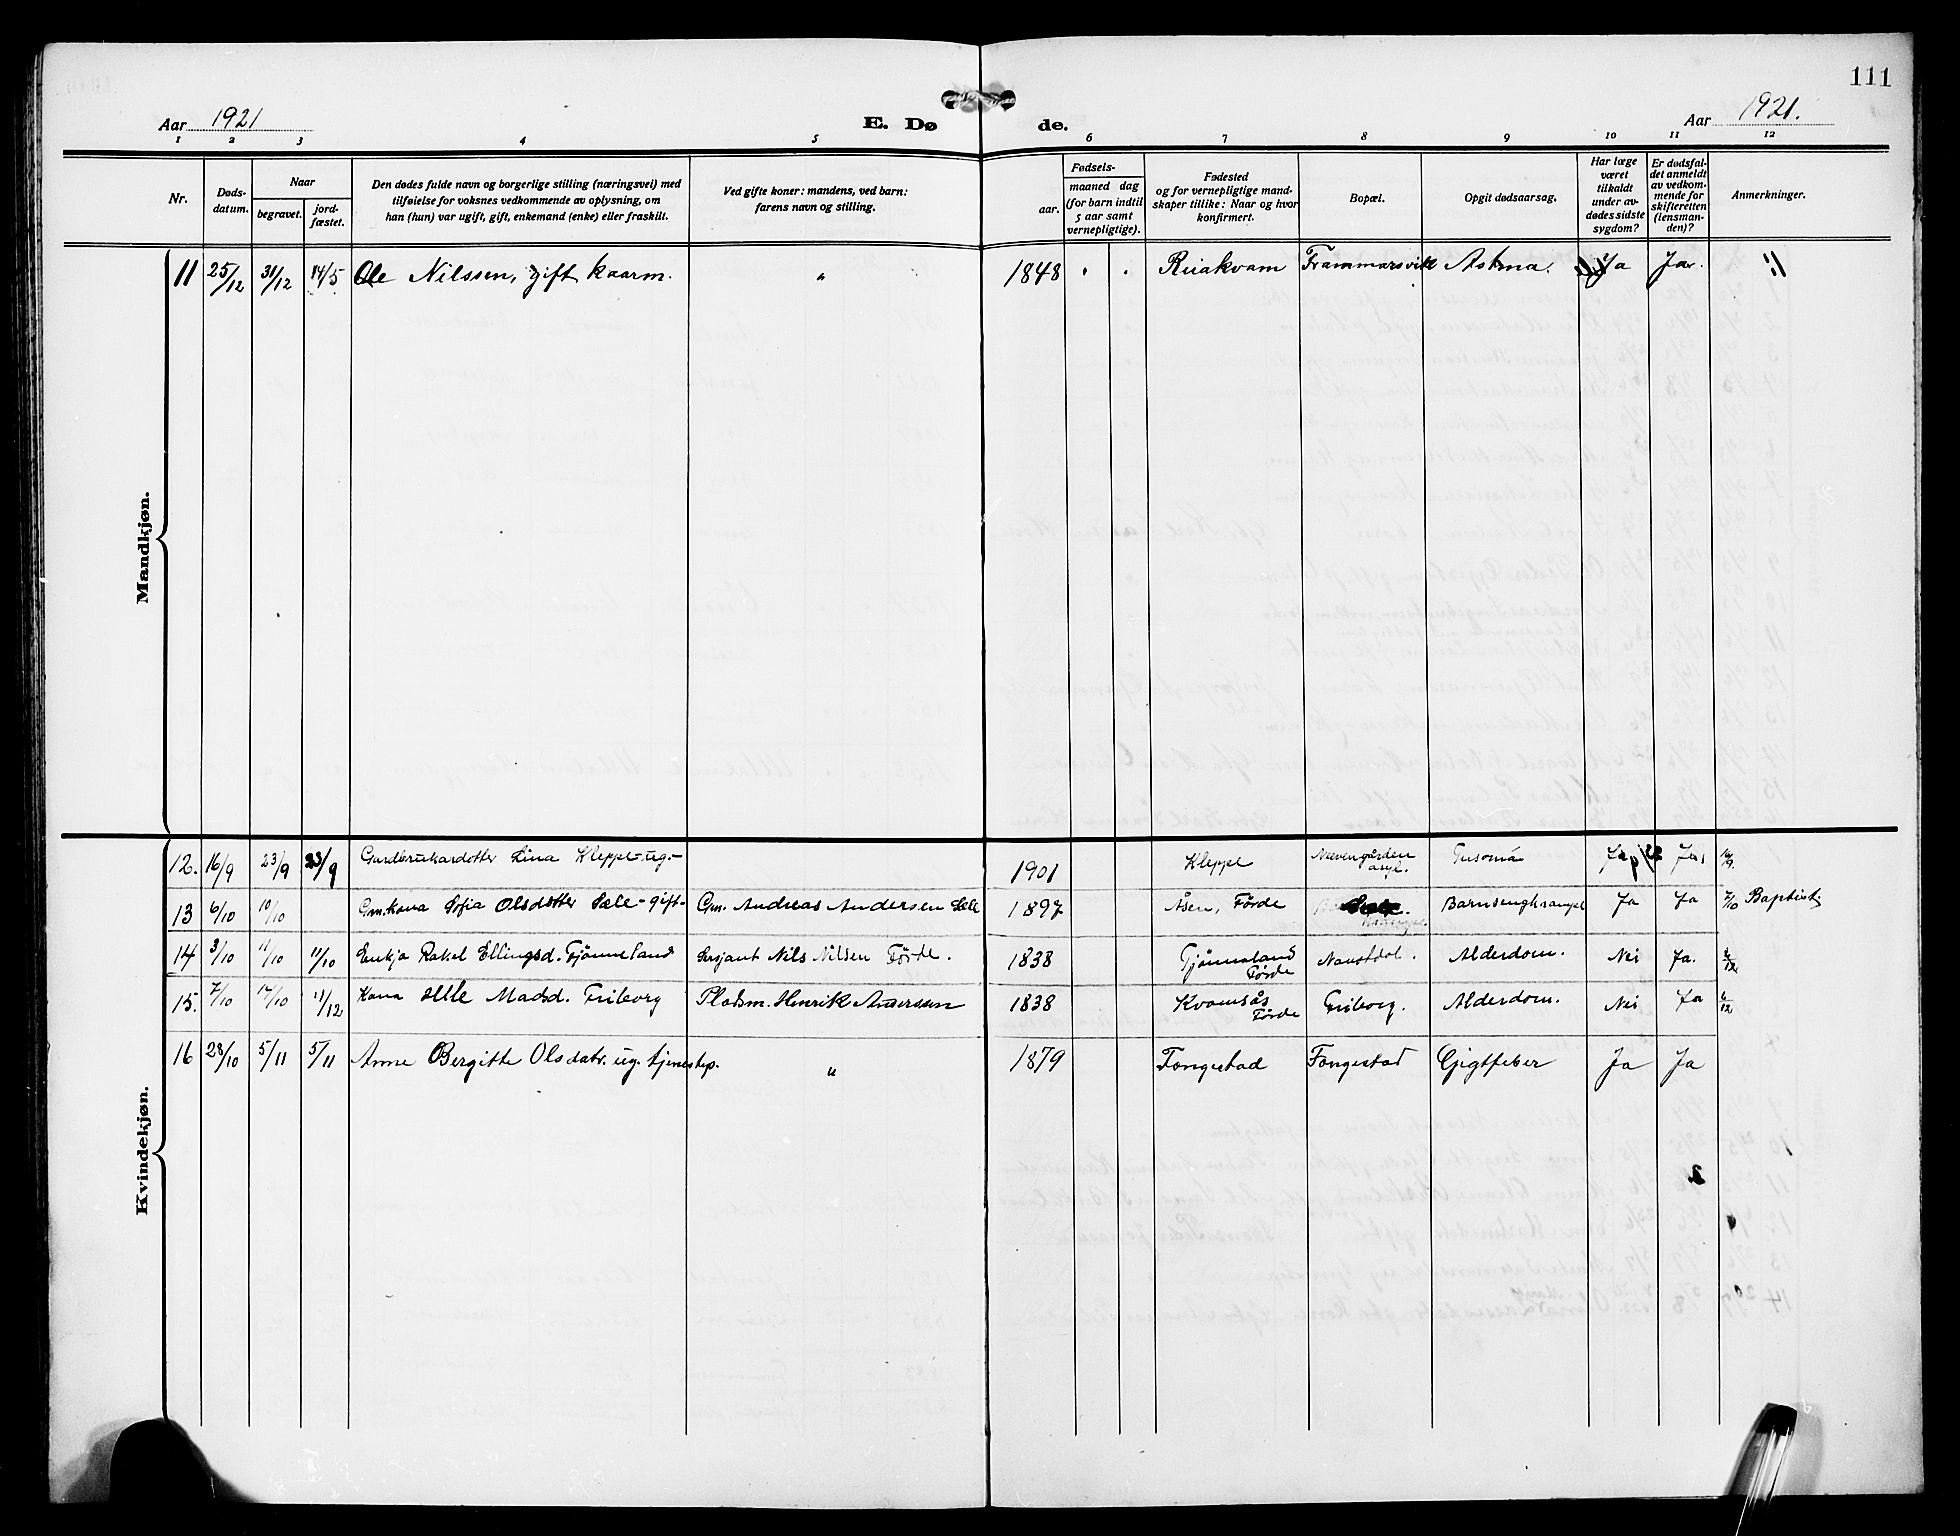 111
Aar 1921 E. Dø de. Aar 1921.
1 2 3 4 5 6 7 8 9 10 11 12
Nr.
Døds-
datum.
Naar
begravet.
jord-
fæstet.
Den dødes fulde navn og borgerlige stilling (næringsvei) med
tilføielse for voksnes vedkommende av oplysning, om
han (hun) var ugift, gift, enkemand (enke) eller fraskilt.
Ved gifte koner: mandens, ved barn:
farens navn og stilling.
Fødsels-
aar.
maaned dag
(for barn indtil
5 aar samt
vernepligtige).
Fødested
og for vernepligtige mand-
skaper tillike: Naar og hvor
konfirmert.
Bopæl.
Opgit dødsaarsag.
Har læge
været
tilkaldt
under av-
dødes sidste
sygdom?
Er dødsfal-
det anmeldt
av vedkom-
mende for
skifteretten
(lensman-
den)?
Anmerkninger.
Mandkjøn.
11 25/12 31/12 14/5 Ole Nilssen, gift kaarm. " 1848 Reiakvam Frammarsvik Astma. Ja Ja.
Kvindekjøn.
12. 16/9 23/9 23/9 Gardbrukardotter Lina Kleppe - ug. - 1901 Kleppe Neevengården asyl. Ja Ja
13 6/10 10/10 Gm.kona Sofia Olsdotter Sæle - gift - Gm. Andreas Andersen Sæle 1897 Åsen, Förde Barnsengkrampe Ja Ja 7/10 Baptist
14 3/10 11/10 11/10 Enkja Rakel Ellingsd. Tjönneland Sersjant Nils Nilsen Förde. 1838 Tjönneland Förde Naustdal. Alderdom. Nei Ja.
15. 7/10 14/10 11/12 Kona Madsd. Friborg Pladsm. Henrik Anderssen 1838 Kvamsås Förde Friborg. Alderdom. Nei Ja 6/12
16 28/10 5/11 5/11 Anne Bergitte Olsdatr. ug. tjenestep. " 1879 Fongestad Fongestad Gigtfeber Ja Ja